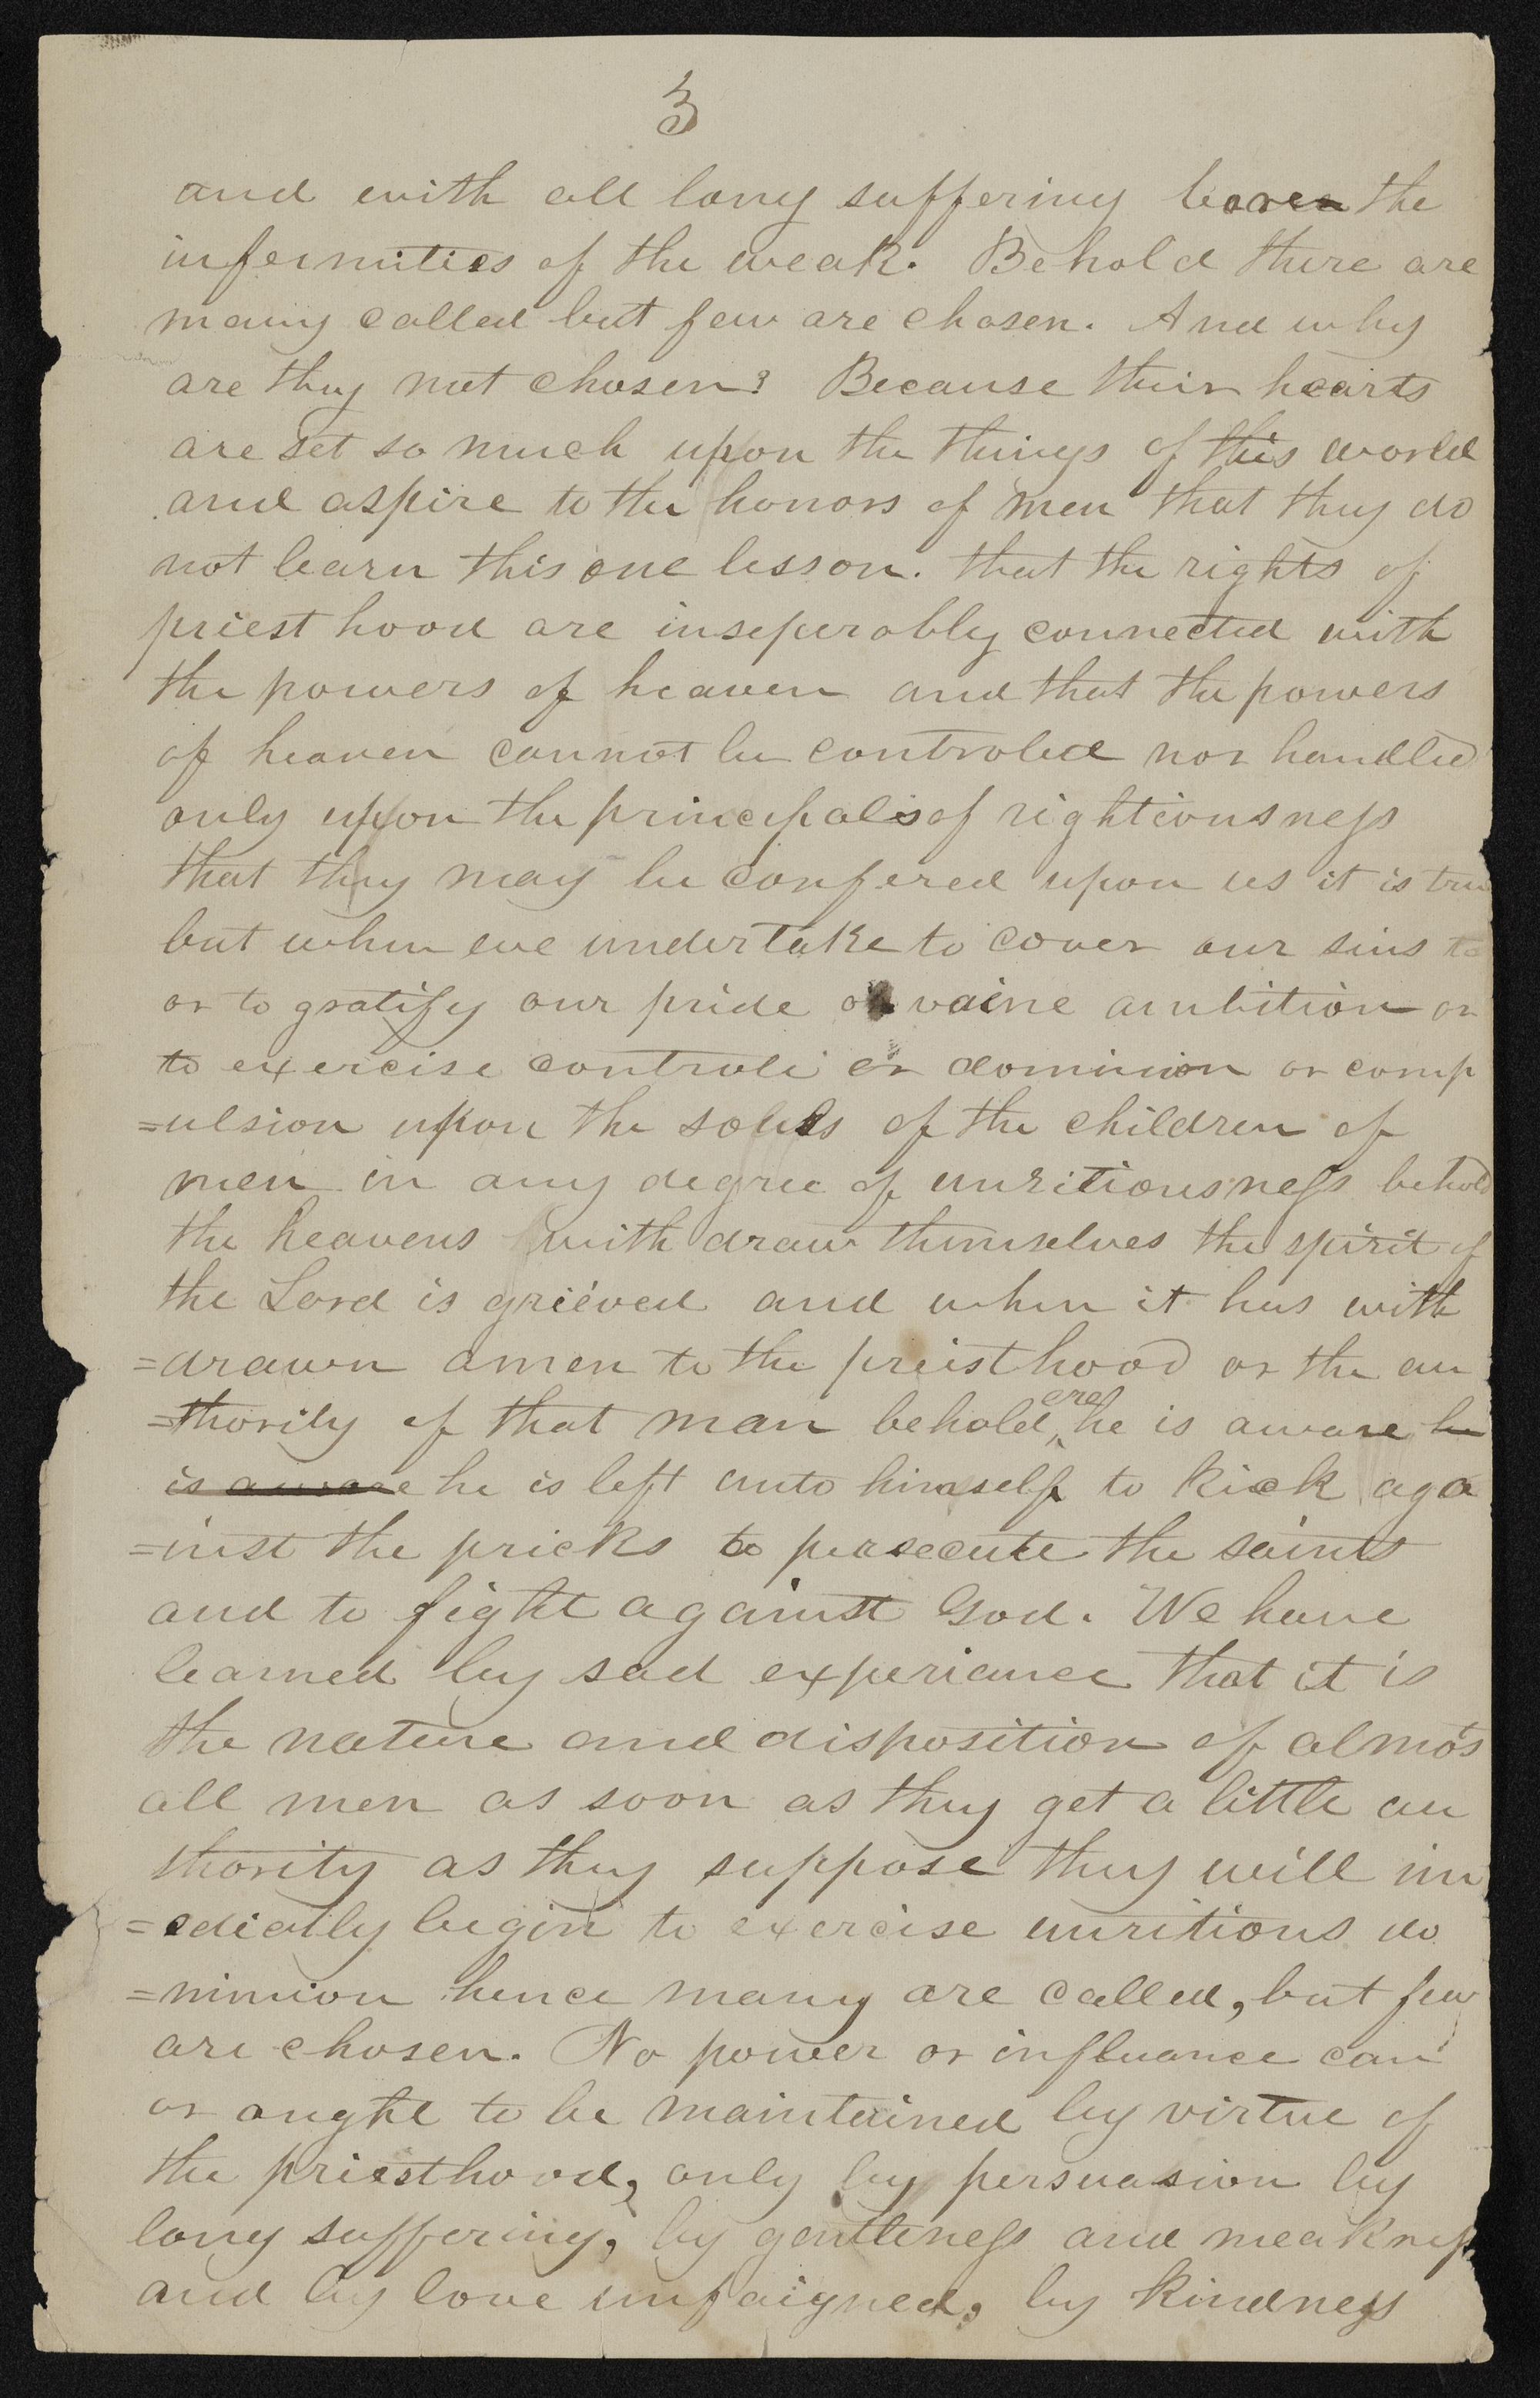 3
and with all long suffering bore the
infermities of the weak. Behold there are
many called but few are chosen. And why
are they not chosen? Because their hearts
are set so much upon the things of this world
and aspire to the honors of men that they do
not learn this one lesson. that the rights of
priest hood are inseperably connected with
the powers of heaven and that the powers
of heaven cannot be controled nor handled
only upon the principals of rightiousness
that they may be confered upon us it is true
but when we undertake to cover our sins to
or to gratify our pride or vaine ambition or
to exercise controle or dominion or comp
=ulsion upon the souls of the children of
men in any degree of unritiousness behold
the heavens with draw themselves the spirit of
the Lord is grieved and when it has with
=drawn amen to the preisthood or the au
=thority of that man behold, ere he is aware he
is aware he is left unto himself to kick aga
=inst the pricks to persecute the saints
and to fight against God. We have
learned by sad experiance that it is
the nature and disposition of almos
all men as soon as they get a little au
thority as they suppose they will im
=ediatly begin to exercise unritious do
=minion hence many are called, but few
are chosen. No power or influance can
or aught to be maintained by virtue of
the priesthood, only by persuasion by
long suffering, by gentleness and meakness
and by love unfaigned, by kindness